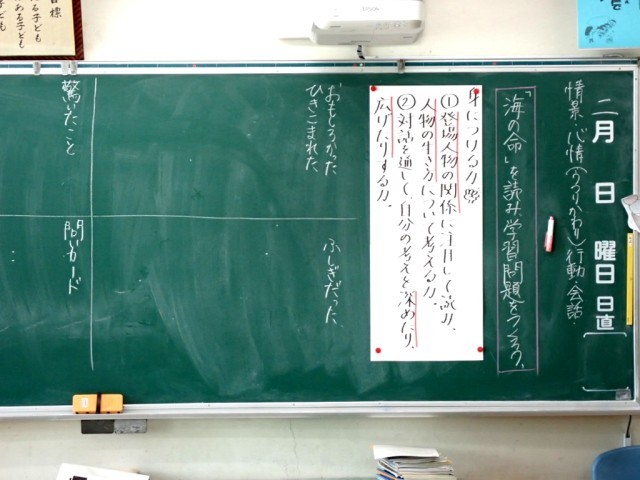 二月 日 曜日 日直
情景 心情(うつりかわり)行動・会話
「海の命」を読み、学習問題をつくろう。
身につける力
①登場人物の関係に注目して読み、
人物の生き方について考える力。
②対話を通して、自分の考えを深めたり、
広げたりする力。
おもしろかった
ひきこまれた
ふしぎだった
驚いたこと
問いカード
目標
ある子ども